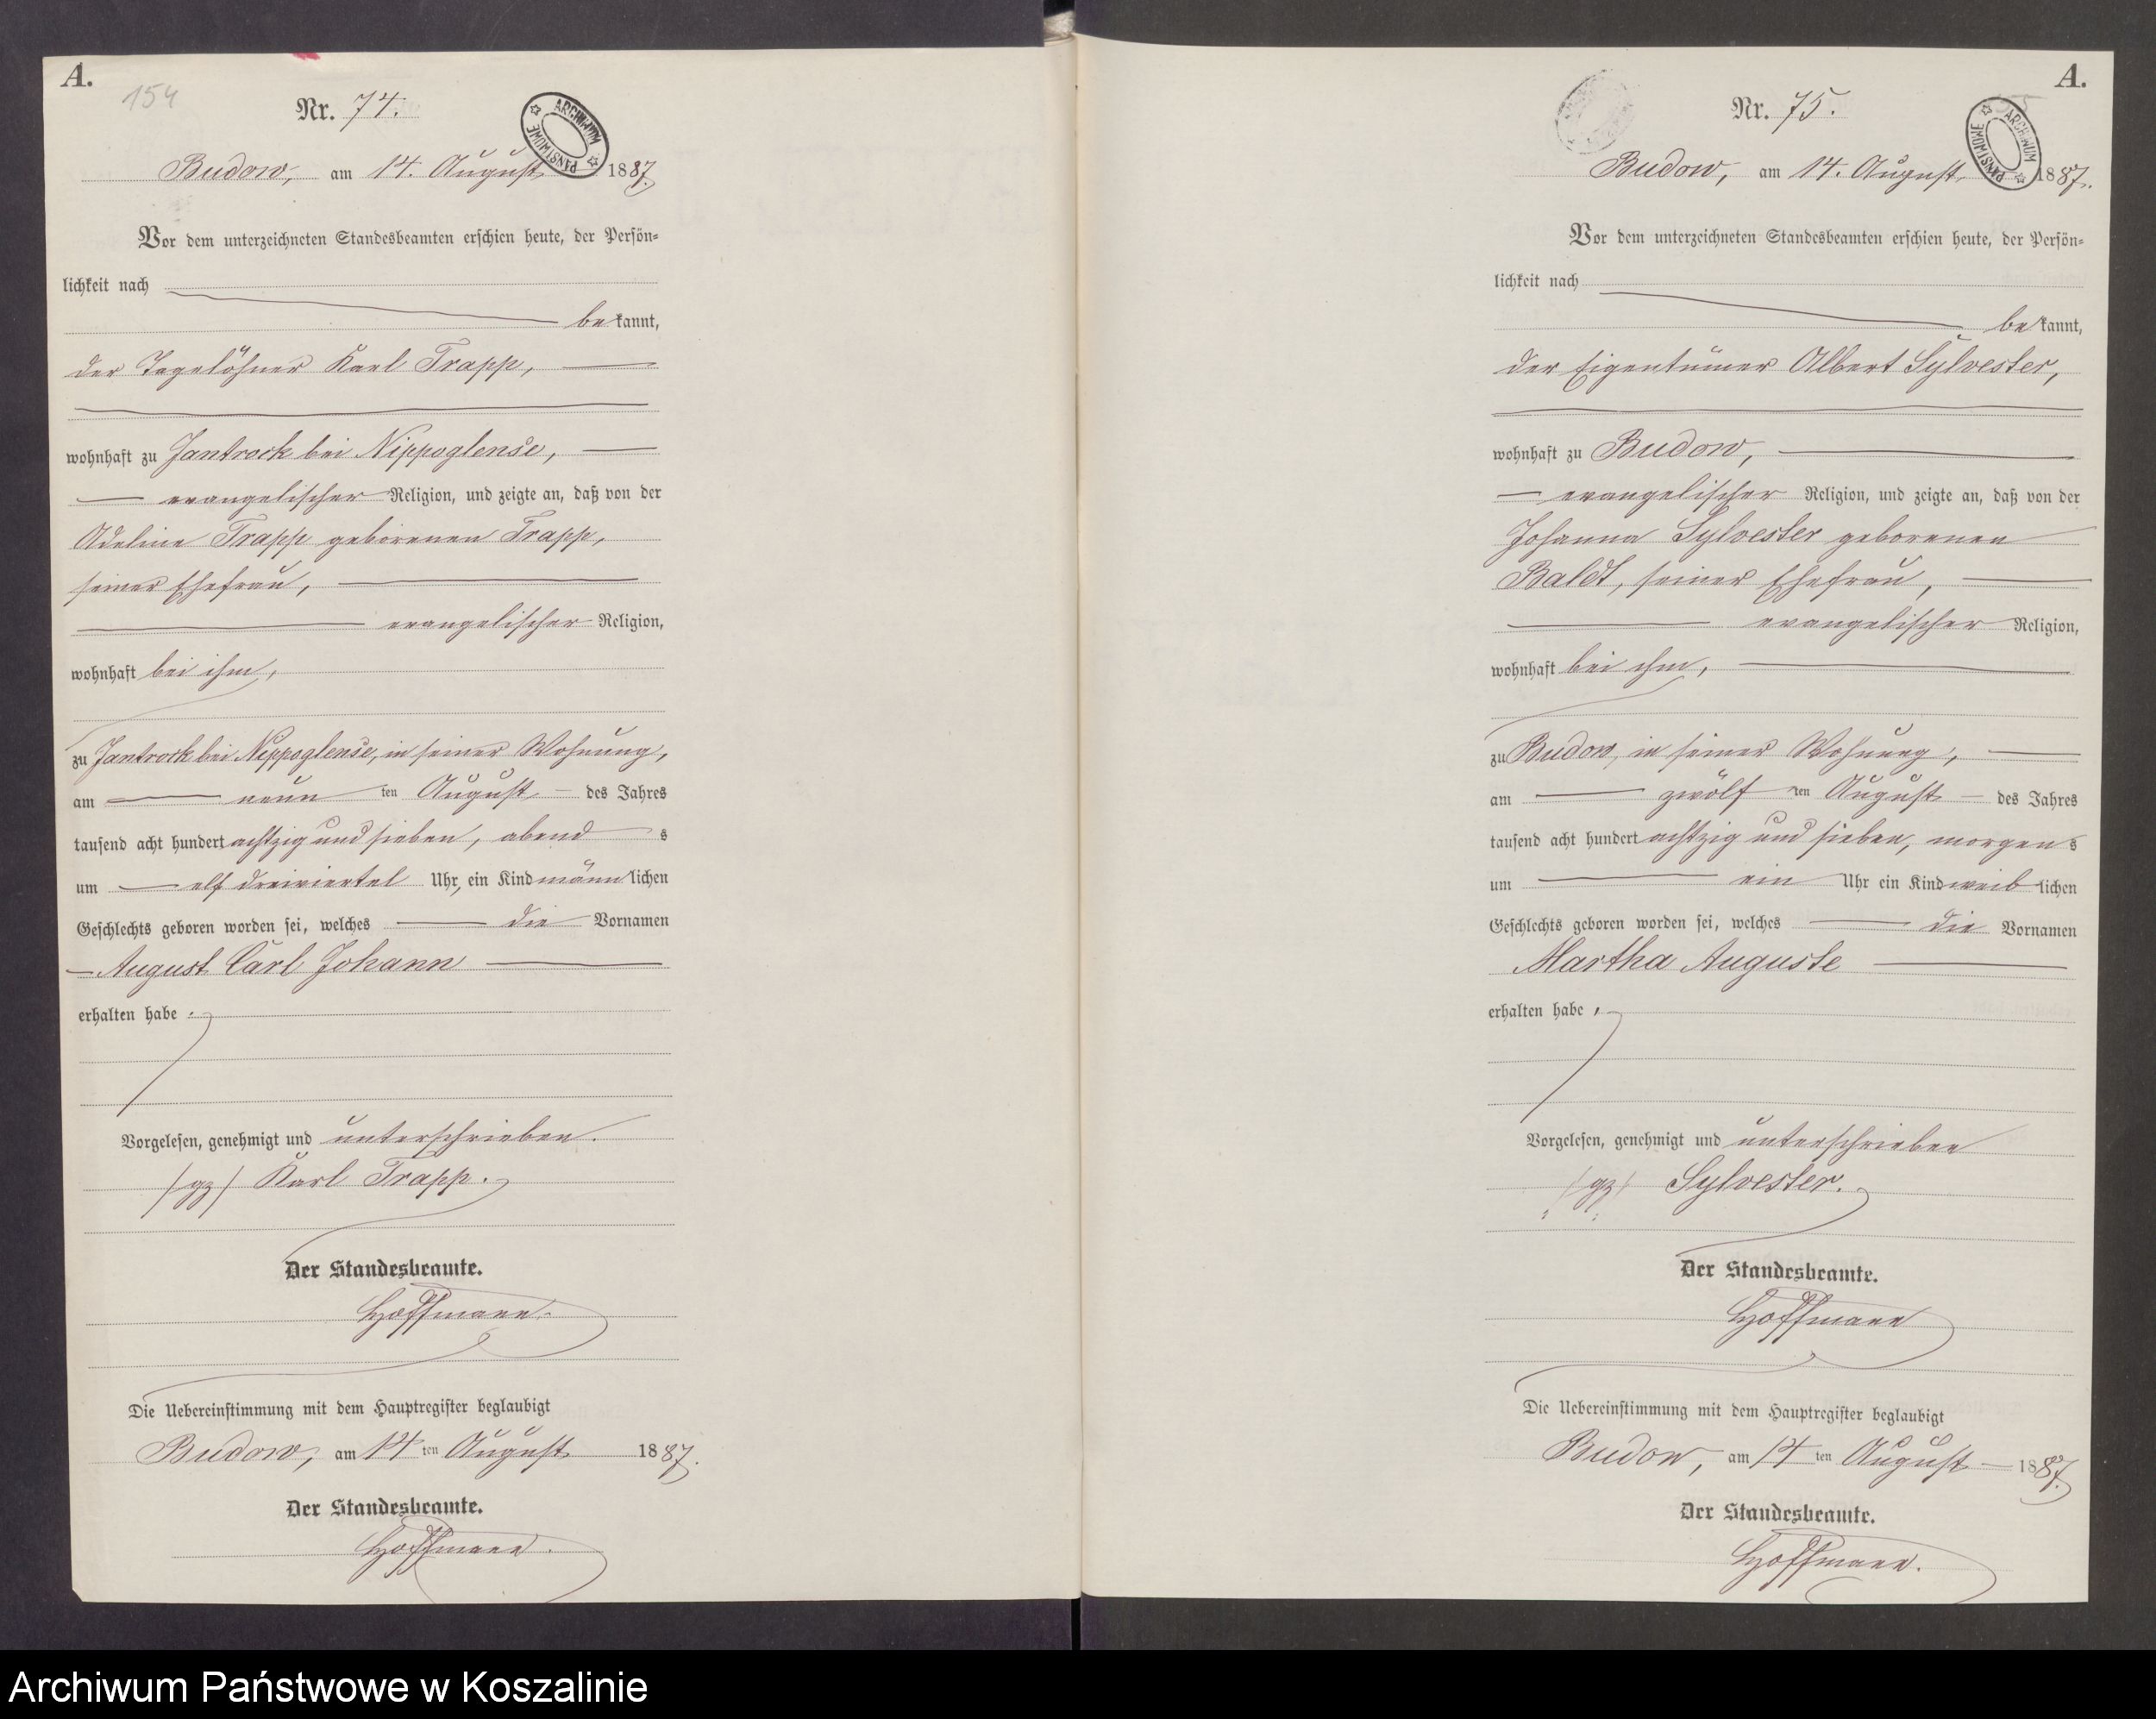 A.
154
Nr. 74.
ARCHIWUM PAŃSTWOWE
Budow, am 14. August 1887.
Vor dem unterzeichneten Standesbeamten erschien heute, der Persön-
lichkeit nach
bekannt,
der Tagelöhner Karl Trapp,
wohnhaft zu Jantrock bei Nippoglense,
evangelischer Religion, und zeigte an, daß von der
Adeline Trapp geborenen Trapp,
seiner Ehefrau,
evangelischer Religion,
wohnhaft bei ihm,
zu Jantrock bei Nippoglense, in seiner Wohnung,
am neun ten August des Jahres
tausend acht hundert achtzig und sieben, abends
um elf dreiviertel Uhr, ein Kind männlichen
Geschlechts geboren worden sei, welches die Vornamen
August Carl Johann
erhalten habe.
Vorgelesen, genehmigt und unterschrieben.
/gz/ Karl Trapp.
Der Standesbeamte.
Hoffmann.
Die Uebereinstimmung mit dem Hauptregister beglaubigt
Budow, am 14 ten August 1887.
Der Standesbeamte.
Hoffmann.
A.
Nr. 75.
ARCHIWUM PAŃSTWOWE
Budow, am 14. August 1887.
Vor dem unterzeichneten Standesbeamten erschien heute, der Persön-
lichkeit nach
bekannt,
der Eigentümer Albert Sylvester,
wohnhaft zu Budow,
evangelischer Religion, und zeigte an, daß von der
Johanna Sylvester geborenen
Baldt, seiner Ehefrau,
evangelischer Religion,
wohnhaft bei ihm,
zu Budow, in seiner Wohnung,
am zwölf ten August des Jahres
tausend acht hundert achtzig und sieben, morgens
um ein Uhr ein Kind weiblichen
Geschlechts geboren worden sei, welches die Vornamen
Martha Auguste
erhalten habe.
Vorgelesen, genehmigt und unterschrieben
/gz/ Sylvester.
Der Standesbeamte.
Hoffmann
Die Uebereinstimmung mit dem Hauptregister beglaubigt
Budow, am 14 ten August 1887.
Der Standesbeamte.
Hoffmann.
Archiwum Państwowe w Koszalinie